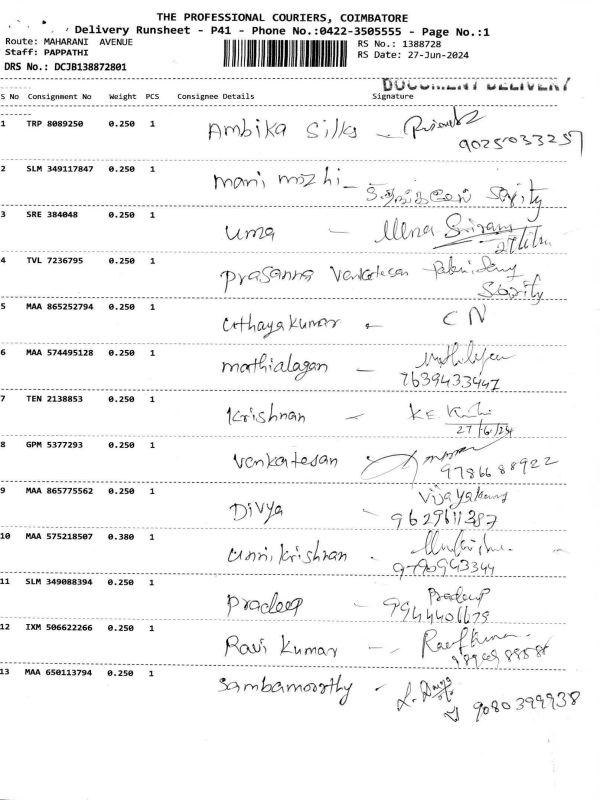 THE PROFESSIONAL COURIERS, COIMBATORE
Delivery Runsheet - P41 - Phone No.:0422-3505555 - Page No.:1
Route: MAHARANI AVENUE
RS No.: 1388728
Staff: PAPPATHI
RS Date: 27-Jun-2024
DRS No.: DCJB138872801
DOCUMENT DELIVERY
S No Consignment No Weight PCS Consignee Details Signature
1 TRP 8089250 0.250 1 Ambika Silks -
9025033257
2 SLM 349117847 0.250 1 mani mozhi -
3 SRE 384048 0.250 1 uma - Uma Sriram
4 TVL 7236795 0.250 1 Prasanna Venkatesan
5 MAA 865252794 0.250 1 uthayakumar - C N
6 MAA 574495128 0.250 1 mathialagan -
7639433447
7 TEN 2138853 0.250 1 Krishnan -
27/6/24
8 GPM 5377293 0.250 1 Venkatesan
9786688922
9 MAA 865775562 0.250 1 Divya - Vijayakumar
9629611387
10 MAA 575218507 0.380 1 unni krishnan -
9790943344
11 SLM 349088394 0.250 1 Pradeep - Pradeep
9944406679
12 IXM 506622266 0.250 1 Ravi Kumar -
13 MAA 650113794 0.250 1 Sambamoorthy -
9080399938